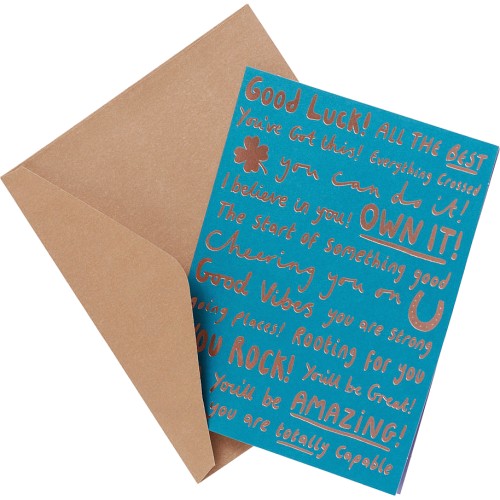 Good Luck! ALL THE BEST
You've Got this! Everything Crossed
you can do it!
I believe in you! OWN IT!
The start of something good
Cheering you on
Good Vibes you are strong
going places! Rooting for you
YOU ROCK! You'll be Great!
You'll be AMAZING!
you are totally Capable